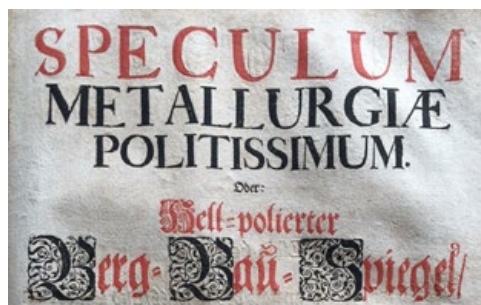 SPECULUM
METALLURGIÆ
POLITISSIMUM.
Oder:
Hell-polierter
Berg-Bau-Spiegel/